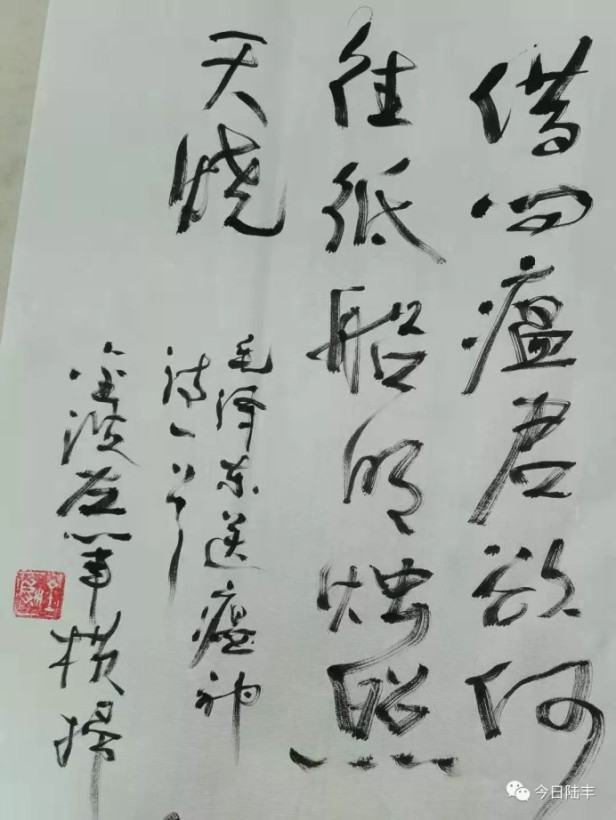 借问瘟君欲何
往纸船明烛照
天烧
毛泽东送瘟神
诗一首
金波左笔横掃
今日陆丰